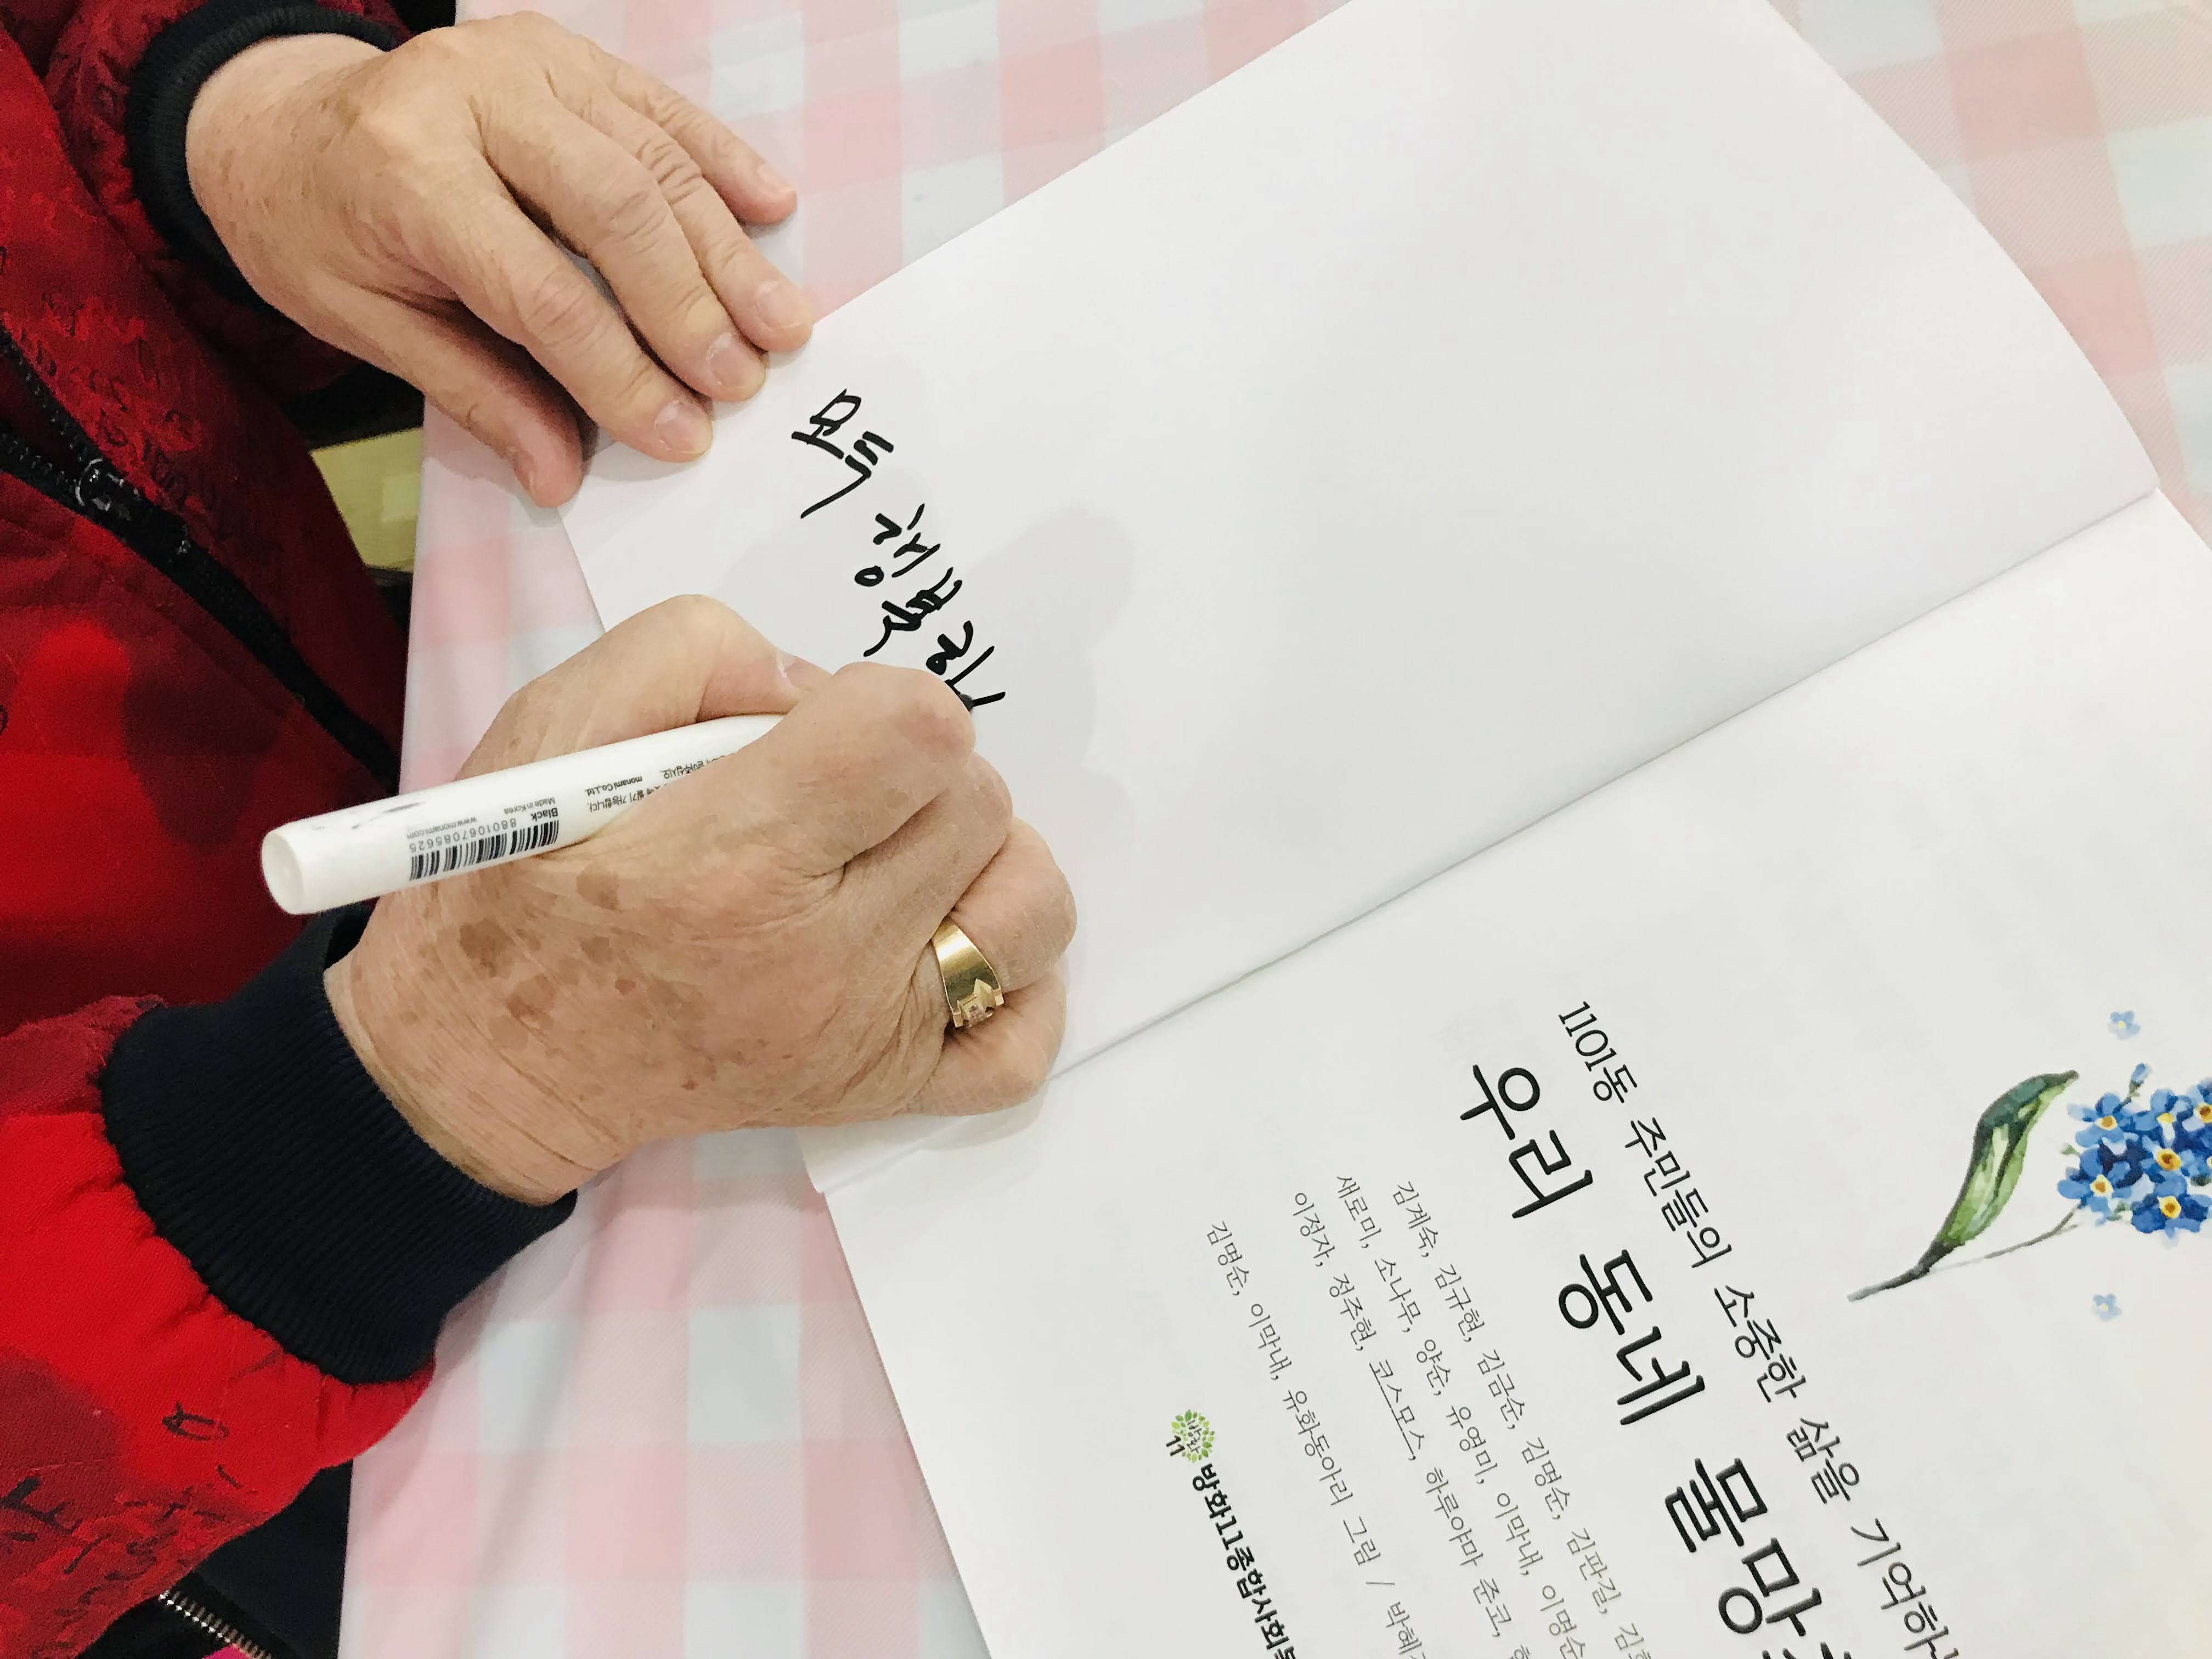 모두 행복
1101동 주민들의 소중한 삶을 기억하
우리 동네 물망
김계숙, 김규현, 김금순, 김명순, 김판길,
새로미, 소나무, 양순, 유영미, 이막내, 이명순
이정자, 정주현, 코스모스, 하루야마 준코,
김명순, 이막내, 유화동아리 그림 / 박혜
방화
11
방화11종합사회복
Black
8801067085625
Made in Korea
www.monami.com
monami Co.,Ltd.